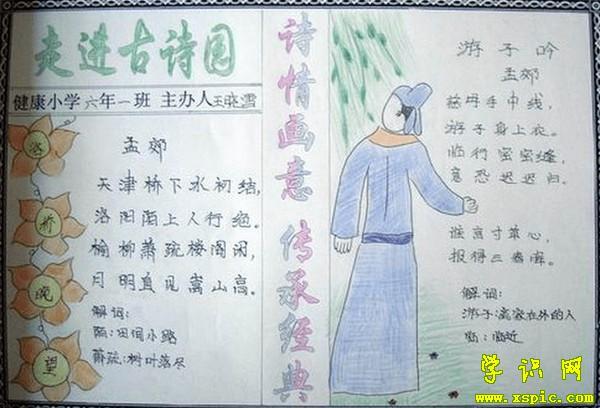 走进古诗园
健康小学六年一班 主办人王晓雪
洛
桥
晚
望
孟郊
天津桥下水初结,
洛阳陌上人行绝。
榆柳萧疏楼阁闲,
月明直见嵩山高。
解词:
陌:田间小路
萧疏:树叶落尽
诗情画意 传承经典
游子吟
孟郊
慈母手中线,
游子身上衣。
临行密密缝,
意恐迟迟归。
谁言寸草心,
报得三春晖。
解词:
游子:离家在外的人
临:临近
学识网
www.xspic.com